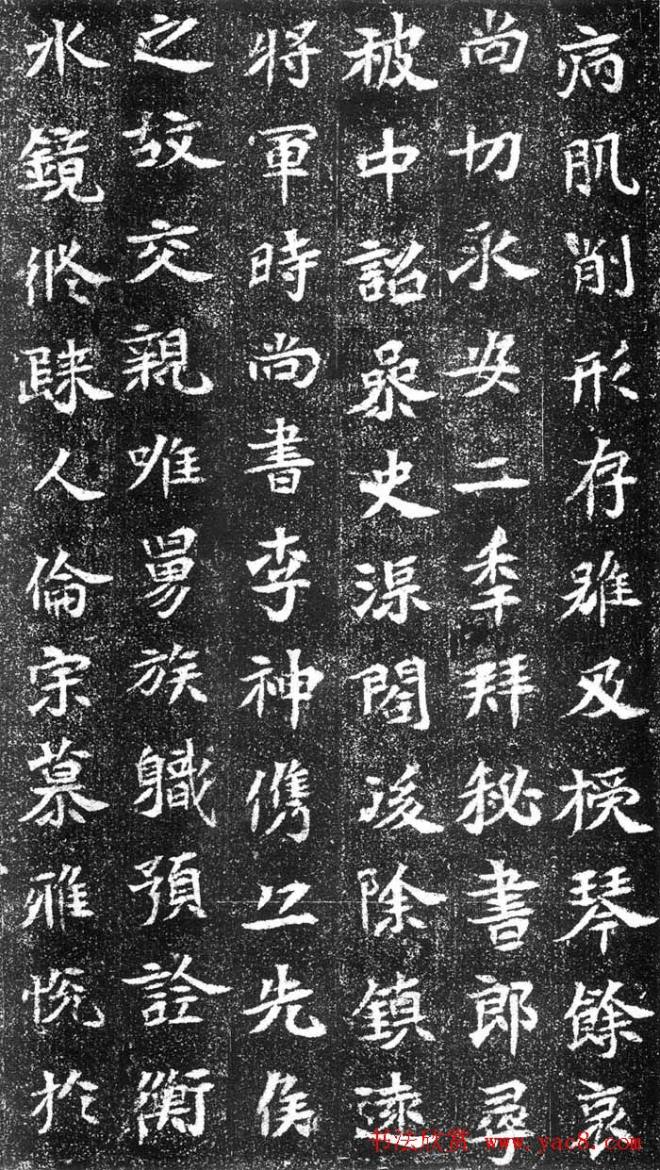 病肌削形存雖及援琴餘哀
尚切永安二季拜秘書郎尋
被中詔參史渠閣後除鎮遠
將軍時尚書李神儁以先侯
之故交親唯舅族職預詮衡
水鏡攸歸人倫宗慕雅悅於
书法欣赏 www.yac8.com